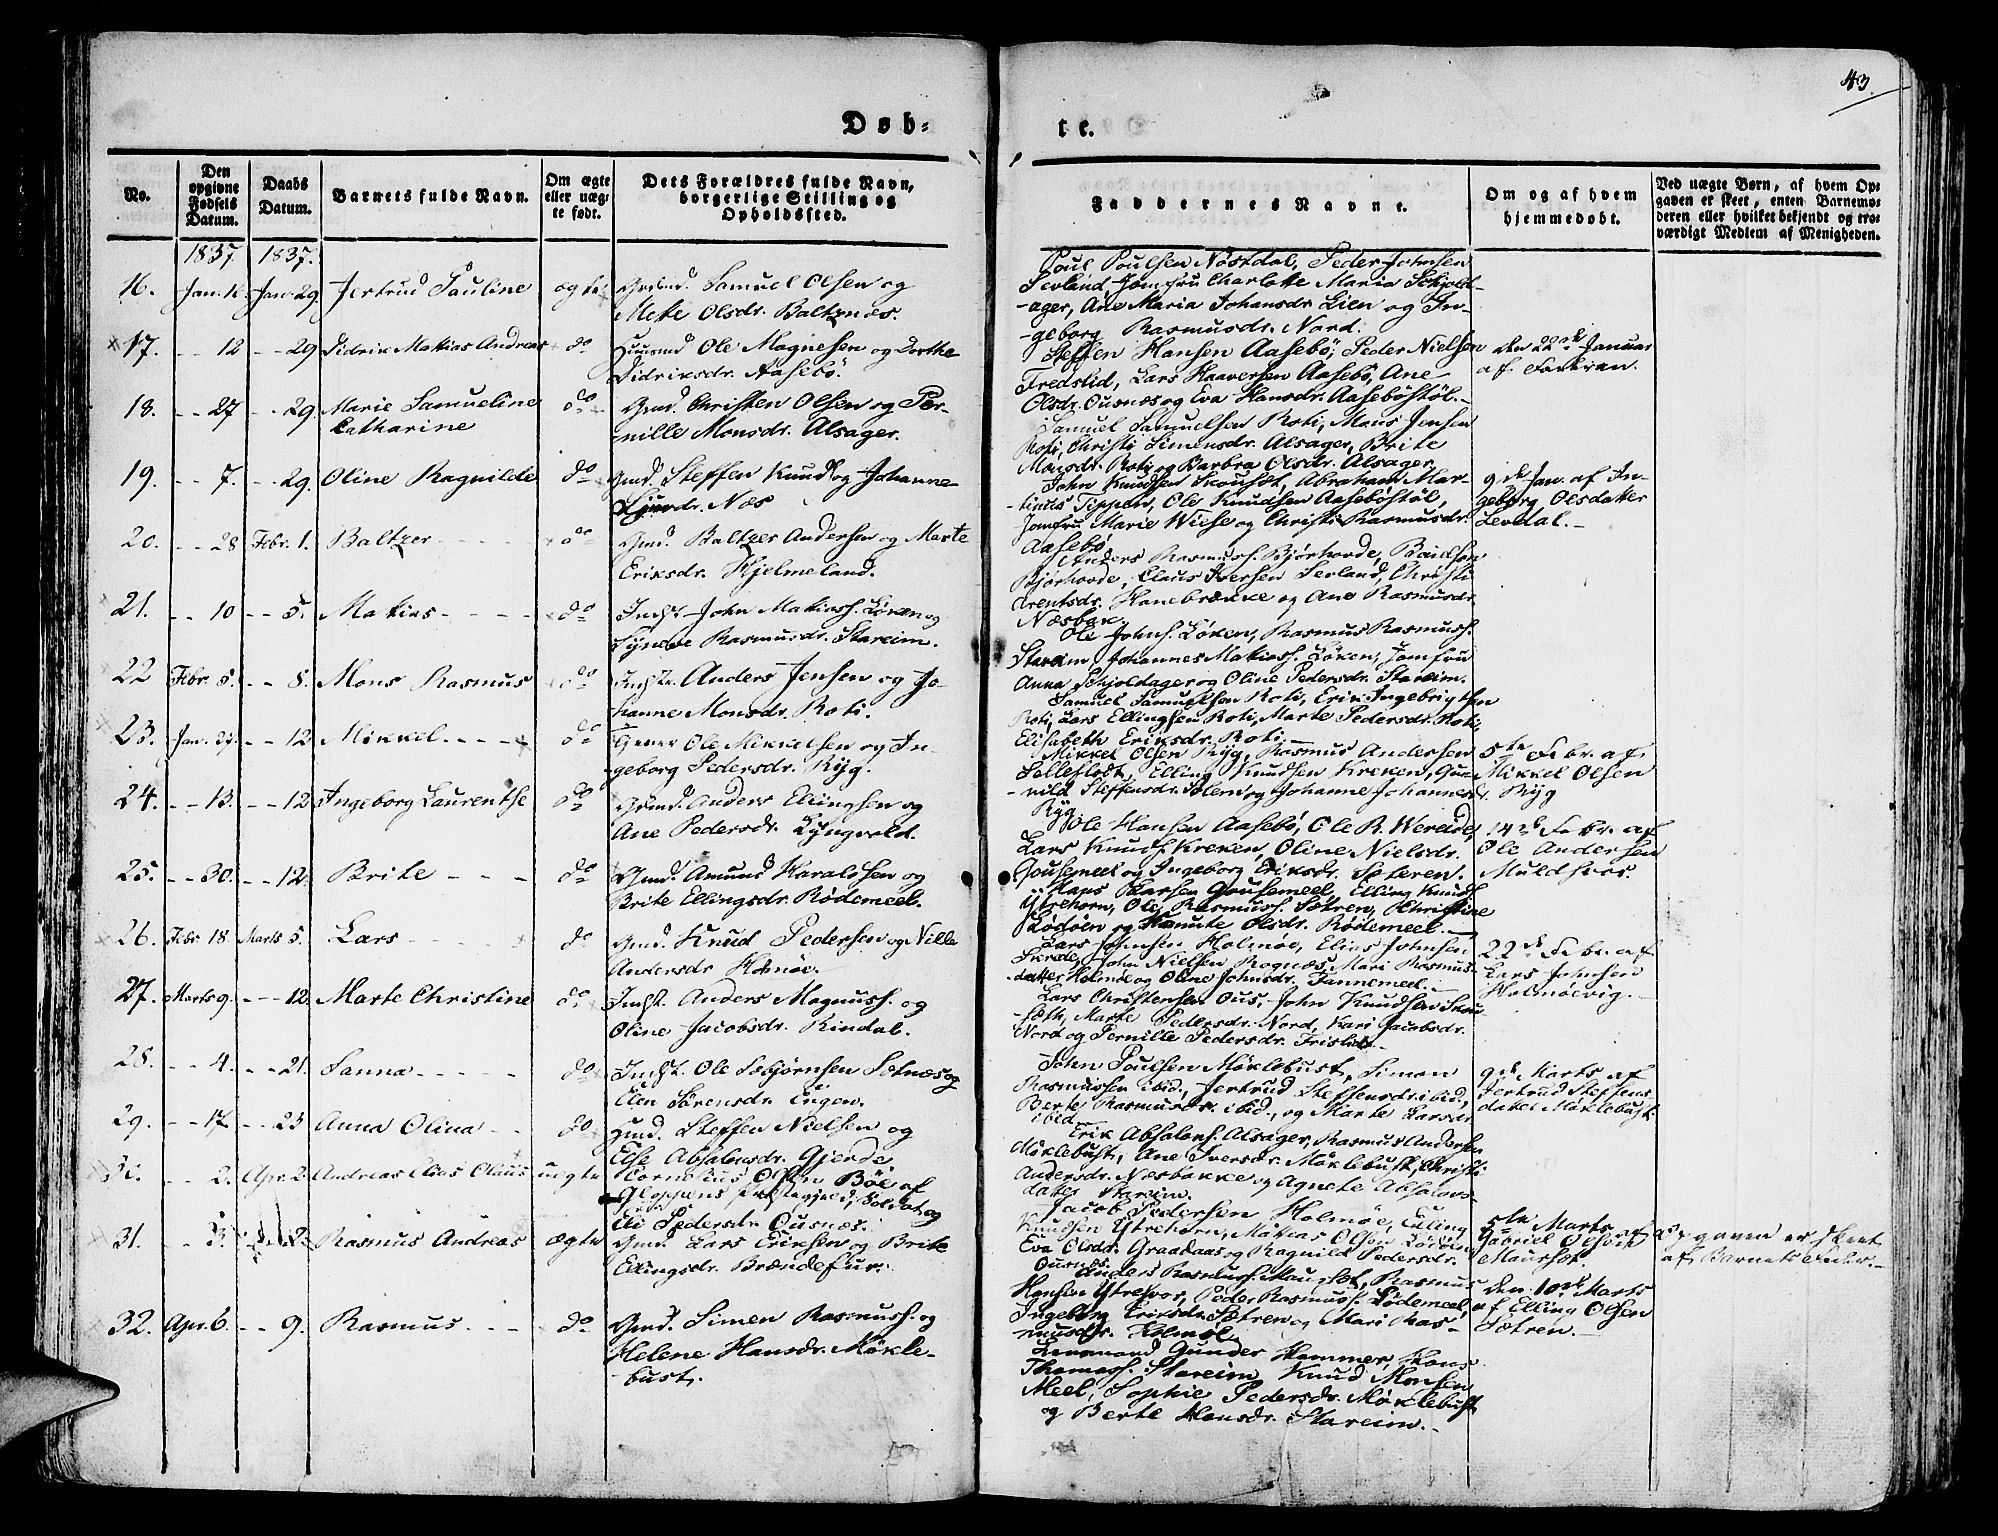 43.
Døb-
te.
No.
Den opgivne Fødsels Datum.
Daabs Datum.
Barnets fulde Navn.
Om ægte eller uægte født.
Dets Forældres fulde Navn, borgerlige Stilling og Opholdssted.
Faddernes Navne.
Om og af hvem hjemmedøbt.
Ved uægte Børn, af hvem Opgaven er skeet, enten Barnemoderen eller hvilket bekjendt og troværdigt Medlem af Menigheden.
1837 1837.
16. Jan. 16 Jan. 29 Jertrud Pauline ægte Gmd. Samuel Olsen og
Mete Olsdr. Baltznæs.
Poul Poulsen Nøstdal, Peder Johnsen
Sevland Jomfru Charlotte Maria Schjold-
-ager, Ane Maria Johansdr. Lien og In-
-geborg Rasmusdr. Nord.
17. -- 12 -- 29 Didrik Matias Andreas do Huusmd Ole Magnesen og Dorthe
Didriksdr. Aasebö.
Steffen Hansen Aasebö, Peder Nielsen
Fredstid, Lars Haaversen Aasebö, Ane
Olsdr. Ousnæs og Eva Hansdr. Aasebøstöl.
den 22de Januar
af Faderen.
18. -- 27 -- 29 Marie Samueline
Catharine
do Gmd. Christen Olsen og Per-
nille Monsdr. Alsager.
Samuel Samuelsen Roti, Mons Jensen
Roti, Christi Simensdr. Alsager, Brite
Monsdr. Roti og Barbra Olsdr. Alsager.
19. -- 7. -- 29. Oline Ragnilde do Gmd. Steffen Knuds. og Johanne
Næs
John Knudsen Skousæt, Abraham Mar-
-tinus Tippetr, Ole Knudsen Aasebøstöl,
Jomfru Marie Wiese og Christi Rasmusdr.
Aasebö
9de Jan. af In-
geborg Olsdatter
Levdal.
20. -- 28 Febr. 1. Baltzer do Gmd. Baltzer Andersen og Marte
Eriksdr. Hjelmeland.
Anders Rasmuss. Bjørhovde,
Bjørhovde, Claus Iversen Sevland, Christi
Arentsdr. Hanebrække og Ane Rasmusdr.
Næsbak.
21. -- 10 -- 5. Matias do Indst. John Matiass. Löken og
Synneve Rasmusdr. Stareim.
Ole Johns. Löken, Rasmus Rasmuss.
Stareim, Johannes Matiass. Löken, Jomfru
Anna Schjoldager og Oline Pedersdr. Stareim.
22 Febr. 5. -- 8. Mons Rasmus do Indst. Anders Jensen og Jo-
hanne Monsdr. Roti.
Samuel Samuelsen Roti, Erik Ingebrigtsen
Roti, Lars Ellingsen Roti, Marte Pedersdr. Roti,
Elisabeth Eriksdr. Roti.
23. Jan. 27. -- 12 Mikkel do Gever Ole Mikkelsen og In-
-geborg Pedersdr. Ryg.
Mikkel Olsen Ryg, Rasmus Andersen
Solleflodt, Elling Knudsen Kreken, Gun-
-nild Steffensdr. Holem og Johanne Johannesdr.
Ryg
5te Febr. af
Mikkel Olsen
Ryg
24. -- 13. -- 12 Ingeborg Laurentse do Gmd. Anders Ellingsen og
Ane Pedersdr. Lyngvold.
Ole Hansen Aasebö, Ole R. Wereide,
Lars Knuds. Kreken, Oline Nielsdr.
Gousemeel og Ingeborg Eriksdr. Sæteren.
14de Febr. af
Ole Andersen
Muldsvor.
25. -- 30. -- 12. Brite do Gmd. Amund Haraldsen og
Brite Ellingsdr. Rødemeel.
Hans Larsen Gousemeel, Elling Knuds.
Ytrehorn, Ole Rasmuss. Sætren, Christine
Rødöen og Hanute Olsdr. Rødemeel.
26. Febr 18. Marts 5. Lars do Gmd. Knud Pedersen og Nille
Andersdr Holmøe.
Lars Johnsen Holmøe, Elias Johnsen
Skrede, John Nielsen Rognæs, Mari Rasmus-
datter Holmøe og Oline Johnsdr. Tannemeel.
22de Febr. af
Lars Johnsen
Holmøevig.
27. Marts 9. -- 12 Marte Christine do Indst. Anders Magnuss. og
Oline Jacobsdr. Rindal.
Lars Christensen Ous, John Knudsen Skou-
-sæth, Marte Pedersdr. Nord, Kari Jacobsdr.
Nord og Pernille Pedersdr. Fristid.
28. -- 4. -- 21. Sanna do Indst. Ole Sebjørnsen Sætnæs og
Elen Sörensdr. Engen.
John Poulsen Møklebust, Simon
Rasmussen ibid., Jertrud Steffensdr. ibid.,
Berte Rasmusdr. ibid., og Marte Larsdr
ibid.
9de Marts af
Jertrud Steffens
datter Møklebust.
29. -- 17 -- 23 Anna Olina do Gmd. Steffen Nielsen og
Else Absalonsdr. Gjerde
Erik Absalons. Alsager, Rasmus Andersen
Møklebust, Ane Iversdr. Møklebust, Christi
Andersdr. Næsbakke og Agnete Absalons-
datter Stareim.
30. -- 2. Apr. 2 Andreas Elias Olaus uægte Cornelius Olsen Böe af
Gloppens Præstegjeld, Soldat og
Eli Pedersdr. Ousnæs.
Jacob Pedersen Holmøe, Elling
Knudsen Ytrehorn, Matias Olsen Lötöln
Eva Olsdr. Graadaas og Ragnild Pedersdr.
Ousnæs.
5te Marts af
Gabriel Olsen
Maursæt.
Opgaven er skeet
af Barnets Fader.
31. -- 3. -- 2. Rasmus Andreas ægte Gmd. Lars Eriksen og Brite
Ellingsdr. Brændefur.
Anders Rasmuss. Maursæt, Rasmus
Hansen Ytrevor, Peder Rasmuss. Rødemeel,
Ingeborg Eriksdr. Sætren og Mari Ras-
musdr. Holmøe.
den 10de Marts
af Elling Olsen
Sætren.
32. Apr. 6. -- 9. Rasmus do Gmd. Simen Rasmuss. og
Helene Hansdr. Møkle-
bust.
Lensmand Gunder Hammer, Hans
Thomass. Stareim, Knud Monsen
Meel, Sophie Pedersdr. Møklebust
og Berte Hansdr. Stareim.